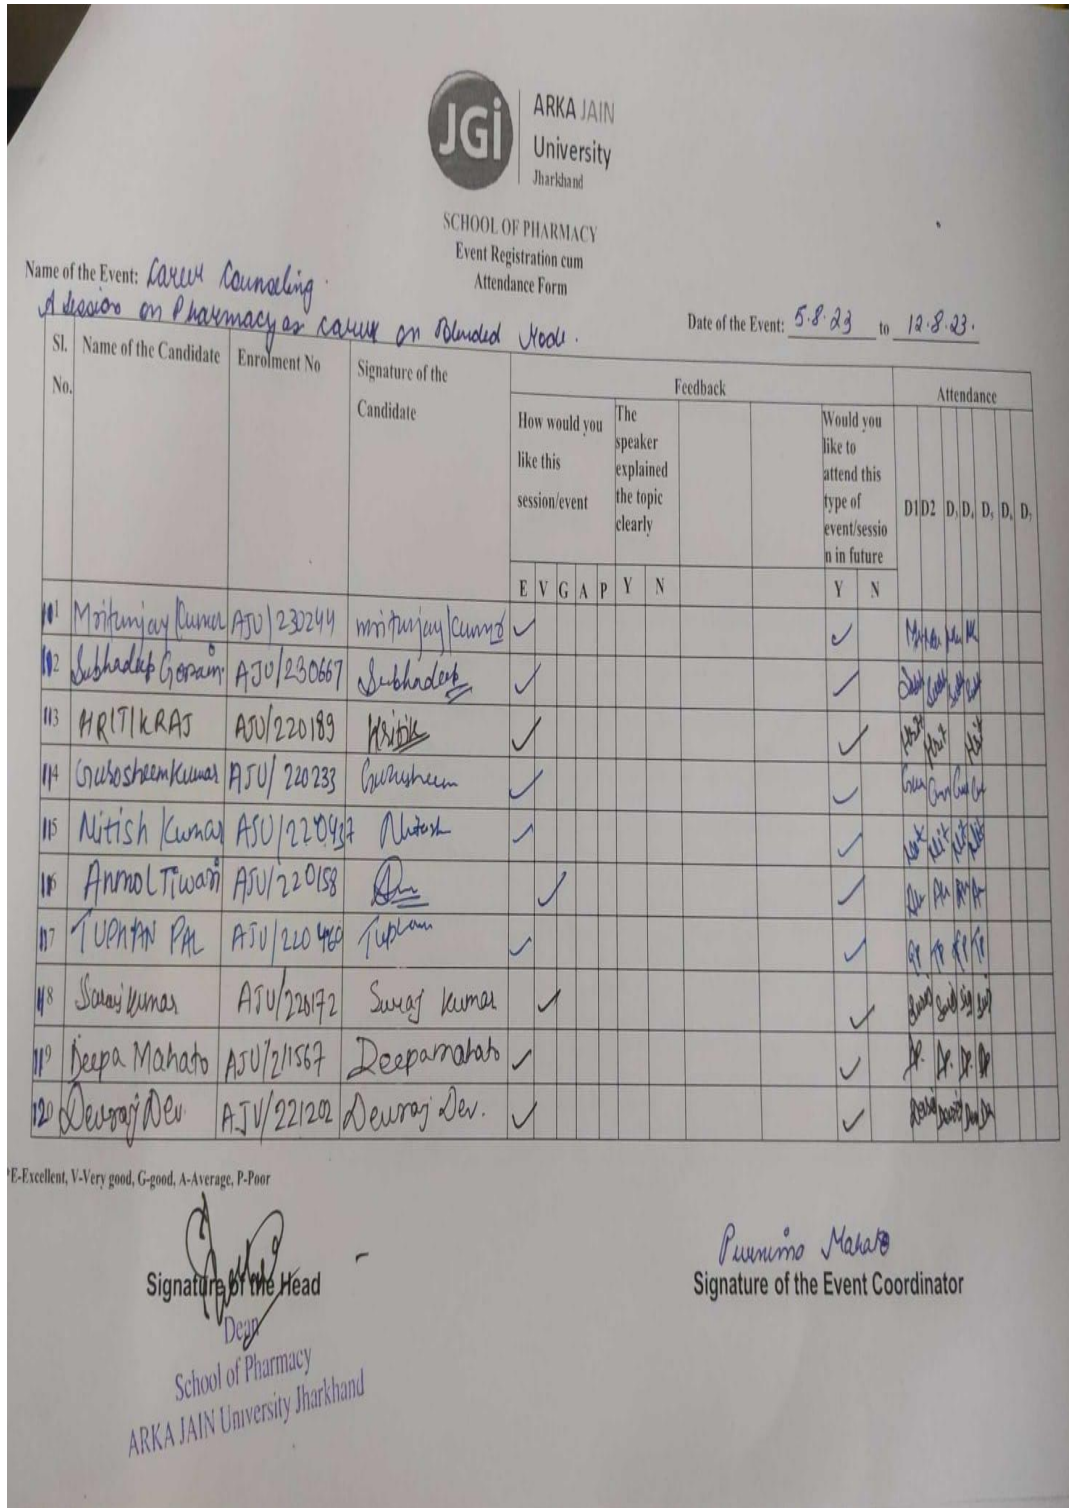 JGi
ARKA JAIN
University
Jharkhand
SCHOOL OF PHARMACY
Event Registration cum
Attendance Form
Name of the Event: Career Counseling.
A session on Pharmacy as career on Blended Mode.
Date of the Event: 5.8.23 to 12.8.23.
Sl. No. Name of the Candidate Enrolment No Signature of the Candidate Feedback Attendance
How would you like this session/event
The speaker explained the topic clearly
Would you like to attend this type of event/session in future
D1 D2 D3 D4 D5 D6 D7
E V G A P Y N Y N
111 Mritunjay Kumar AJU/230244 mritunjay kumar ✓ ✓
112 Subhadeep Gorain AJU/230667 Subhadeep ✓ ✓
113 HRITIK RAJ AJU/220189 Hritik ✓ ✓
114 Gurosheem Kumar AJU/220233 Gurusheem ✓ ✓
115 Nitish Kumar AJU/220437 Nitish ✓ ✓
116 Anmol Tiwari AJU/220158 ✓ ✓
117 TUPHAN PAL AJU/220460 Tuphan ✓ ✓
118 Suraj Kumar AJU/220172 Suraj Kumar ✓ ✓
119 Deepa Mahato AJU/211567 Deepa mahato ✓ ✓
120 Devraj Dev. AJU/221202 Devraj Dev. ✓ ✓
*E-Excellent, V-Very good, G-good, A-Average, P-Poor
Purnima Mahato
Signature of the Head
Signature of the Event Coordinator
Dean
School of Pharmacy
ARKA JAIN University Jharkhand